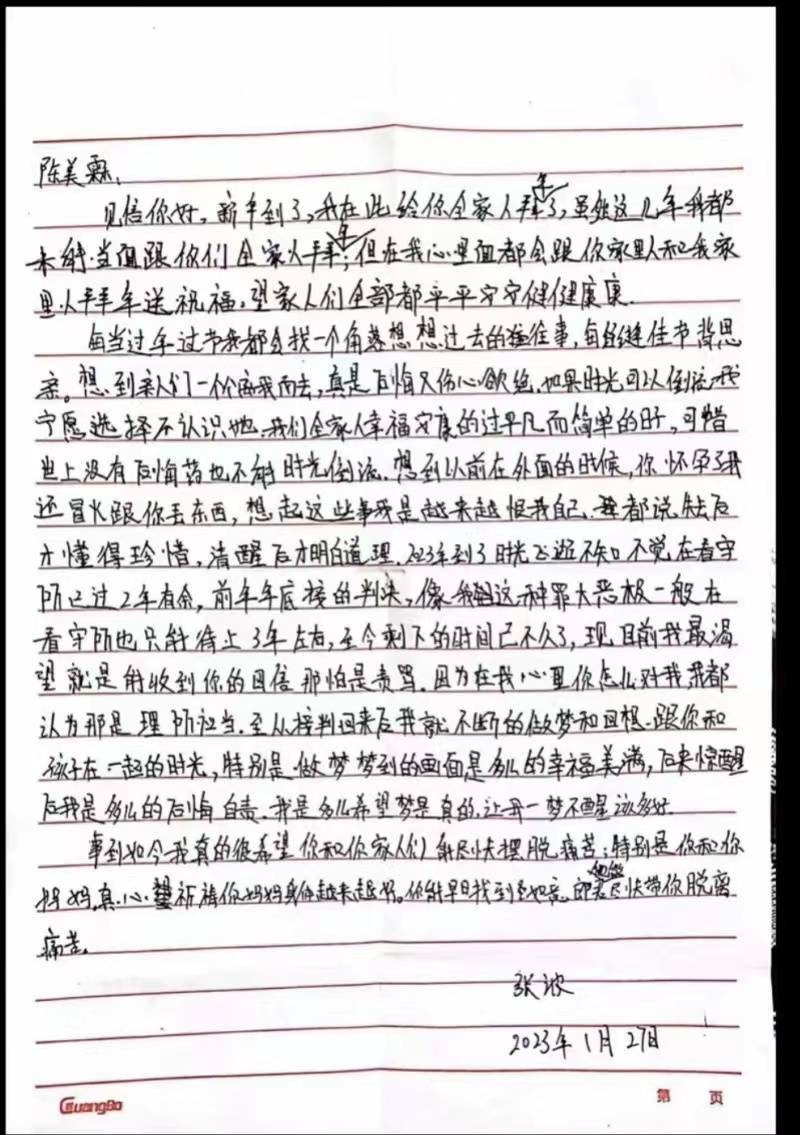 陈美霖:
见信你好,新年到了,我在此给你全家人拜年了,虽然这几年我都
未能当面跟你们全家人拜年,但在我心里面都会跟你家里人和我家
里人拜拜年送祝福,望家人们全部都平平安安健健康康.
每当过年过节我都会找一个角落想想过去的往事,每逢佳节背思
亲。想到亲人们一个个离我而去,真是后悔又伤心欲绝.如果时光可以倒流我
宁愿选择不认识她.我们全家人幸福安康的过平凡而简单的日子,可惜
世上没有后悔药也不能时光倒流.想到以前在外面的时候,你怀孕了我
还冒火跟你丢东西,想起这些事我是越来越恨我自己.都说失去后
才懂得珍惜,清醒后才明白道理.2023年到了时光飞逝不知不觉在看守
所已过2年有余,前年年底接的判决,像我这种罪大恶极一般在
看守所也只能待上3年左右,至今剩下的时间已不久了,现目前我最渴
望就是能收到你的回信那怕是责骂.因为在我心里你怎么对我我都
认为那是理所应当.至从接判回来后我就不断的做梦和回想.跟你和
孩子在一起的时光,特别是做梦梦到的画面是多么的幸福美满,后来惊醒
后我是多么的后悔自责.我是多么希望梦是真的.让我一梦不醒该多好.
事到如今我真的很希望你和你家人们能尽快摆脱痛苦;特别是你和你
妈妈.真心望祈祷你妈妈身体越来越好。你能早日找到如意郎君他能尽快带你脱离
痛苦。
张波
2023年1月27日
GuangBo
第 页